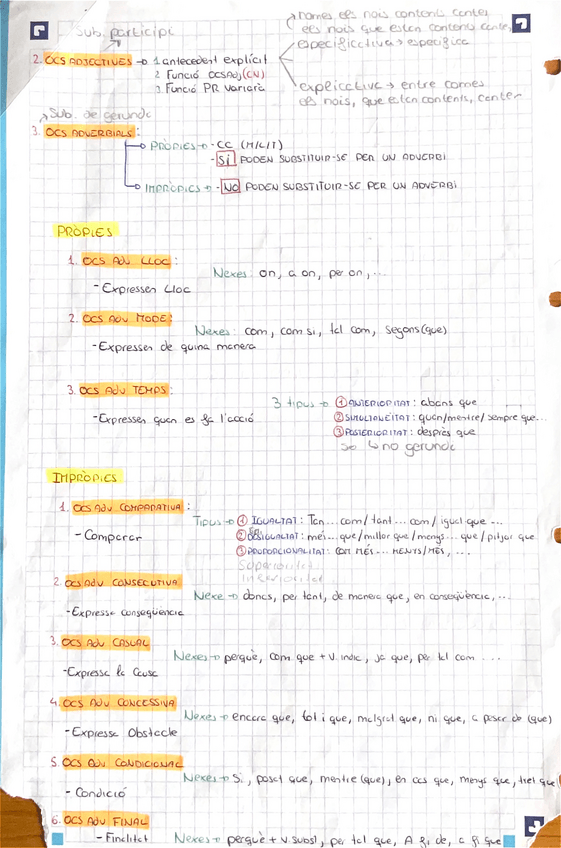 Sub. participi
només els nois contents canten
els nois que estan contents canten
especificativa → específica
2. OCS ADJECTIVES → 1 Antecedent explícit
2 Funció OCSAdj (CN)
3 Funció PR variarà
explicativa → entre comes
els nois, que estan contents, canten
Sub. de gerundi
3. OCS ADVERBIALS:
PRÒPIES → - CC (M/L/T)
- SÍ PODEN SUBSTITUIR-SE PER UN ADVERBI
IMPRÒPIES → - NO PODEN SUBSTITUIR-SE PER UN ADVERBI
PRÒPIES
1. OCS Adv LLOC:
Nexes: on, a on, per on,...
- Expressen Lloc
2. OCS Adv MODE:
Nexes: com, com si, tal com, segons(que)
- Expressen de quina manera
3. OCS Adv TEMPS:
3 tipus → ① ANTERIORITAT: abans que
- Expressen quan es fa l'acció
② SIMULTANEÏTAT: quan/mentre/sempre que...
③ POSTERIORITAT: després que
↳ no gerundi
IMPRÒPIES
1. OCS ADV COMPARATIVA:
Tipus → ① IGUALTAT: Tan... com/tant... com/igual que ...
- Comparar
② DESIGUALTAT: més... que/millor que/menys... que/pitjor que
③ PROPORCIONALITAT: COM MÉS ... MENYS/MÉS, ...
Superioritat
Inferioritat
2. OCS ADV CONSECUTIVA
Nexe → doncs, per tant, de manera que, en conseqüència,...
- Expressa conseqüència
3. OCS Adv CASUAL
Nexes → perquè, com que + v. indic, ja que, per tal com ...
- Expressa la Causa
4. OCS Adv CONCESSIVA
Nexes → encara que, tot i que, malgrat que, ni que, a pesar de (que)
- Expressa Obstacle
5. OCS Adv CONDICIONAL
Nexes → Si, posat que, mentre (que), en cas que, menys que, tret que
- Condició
6. OCS Adv FINAL
- Finalitat
Nexes → perquè + v. subst, per tal que, A fi de, a fi que